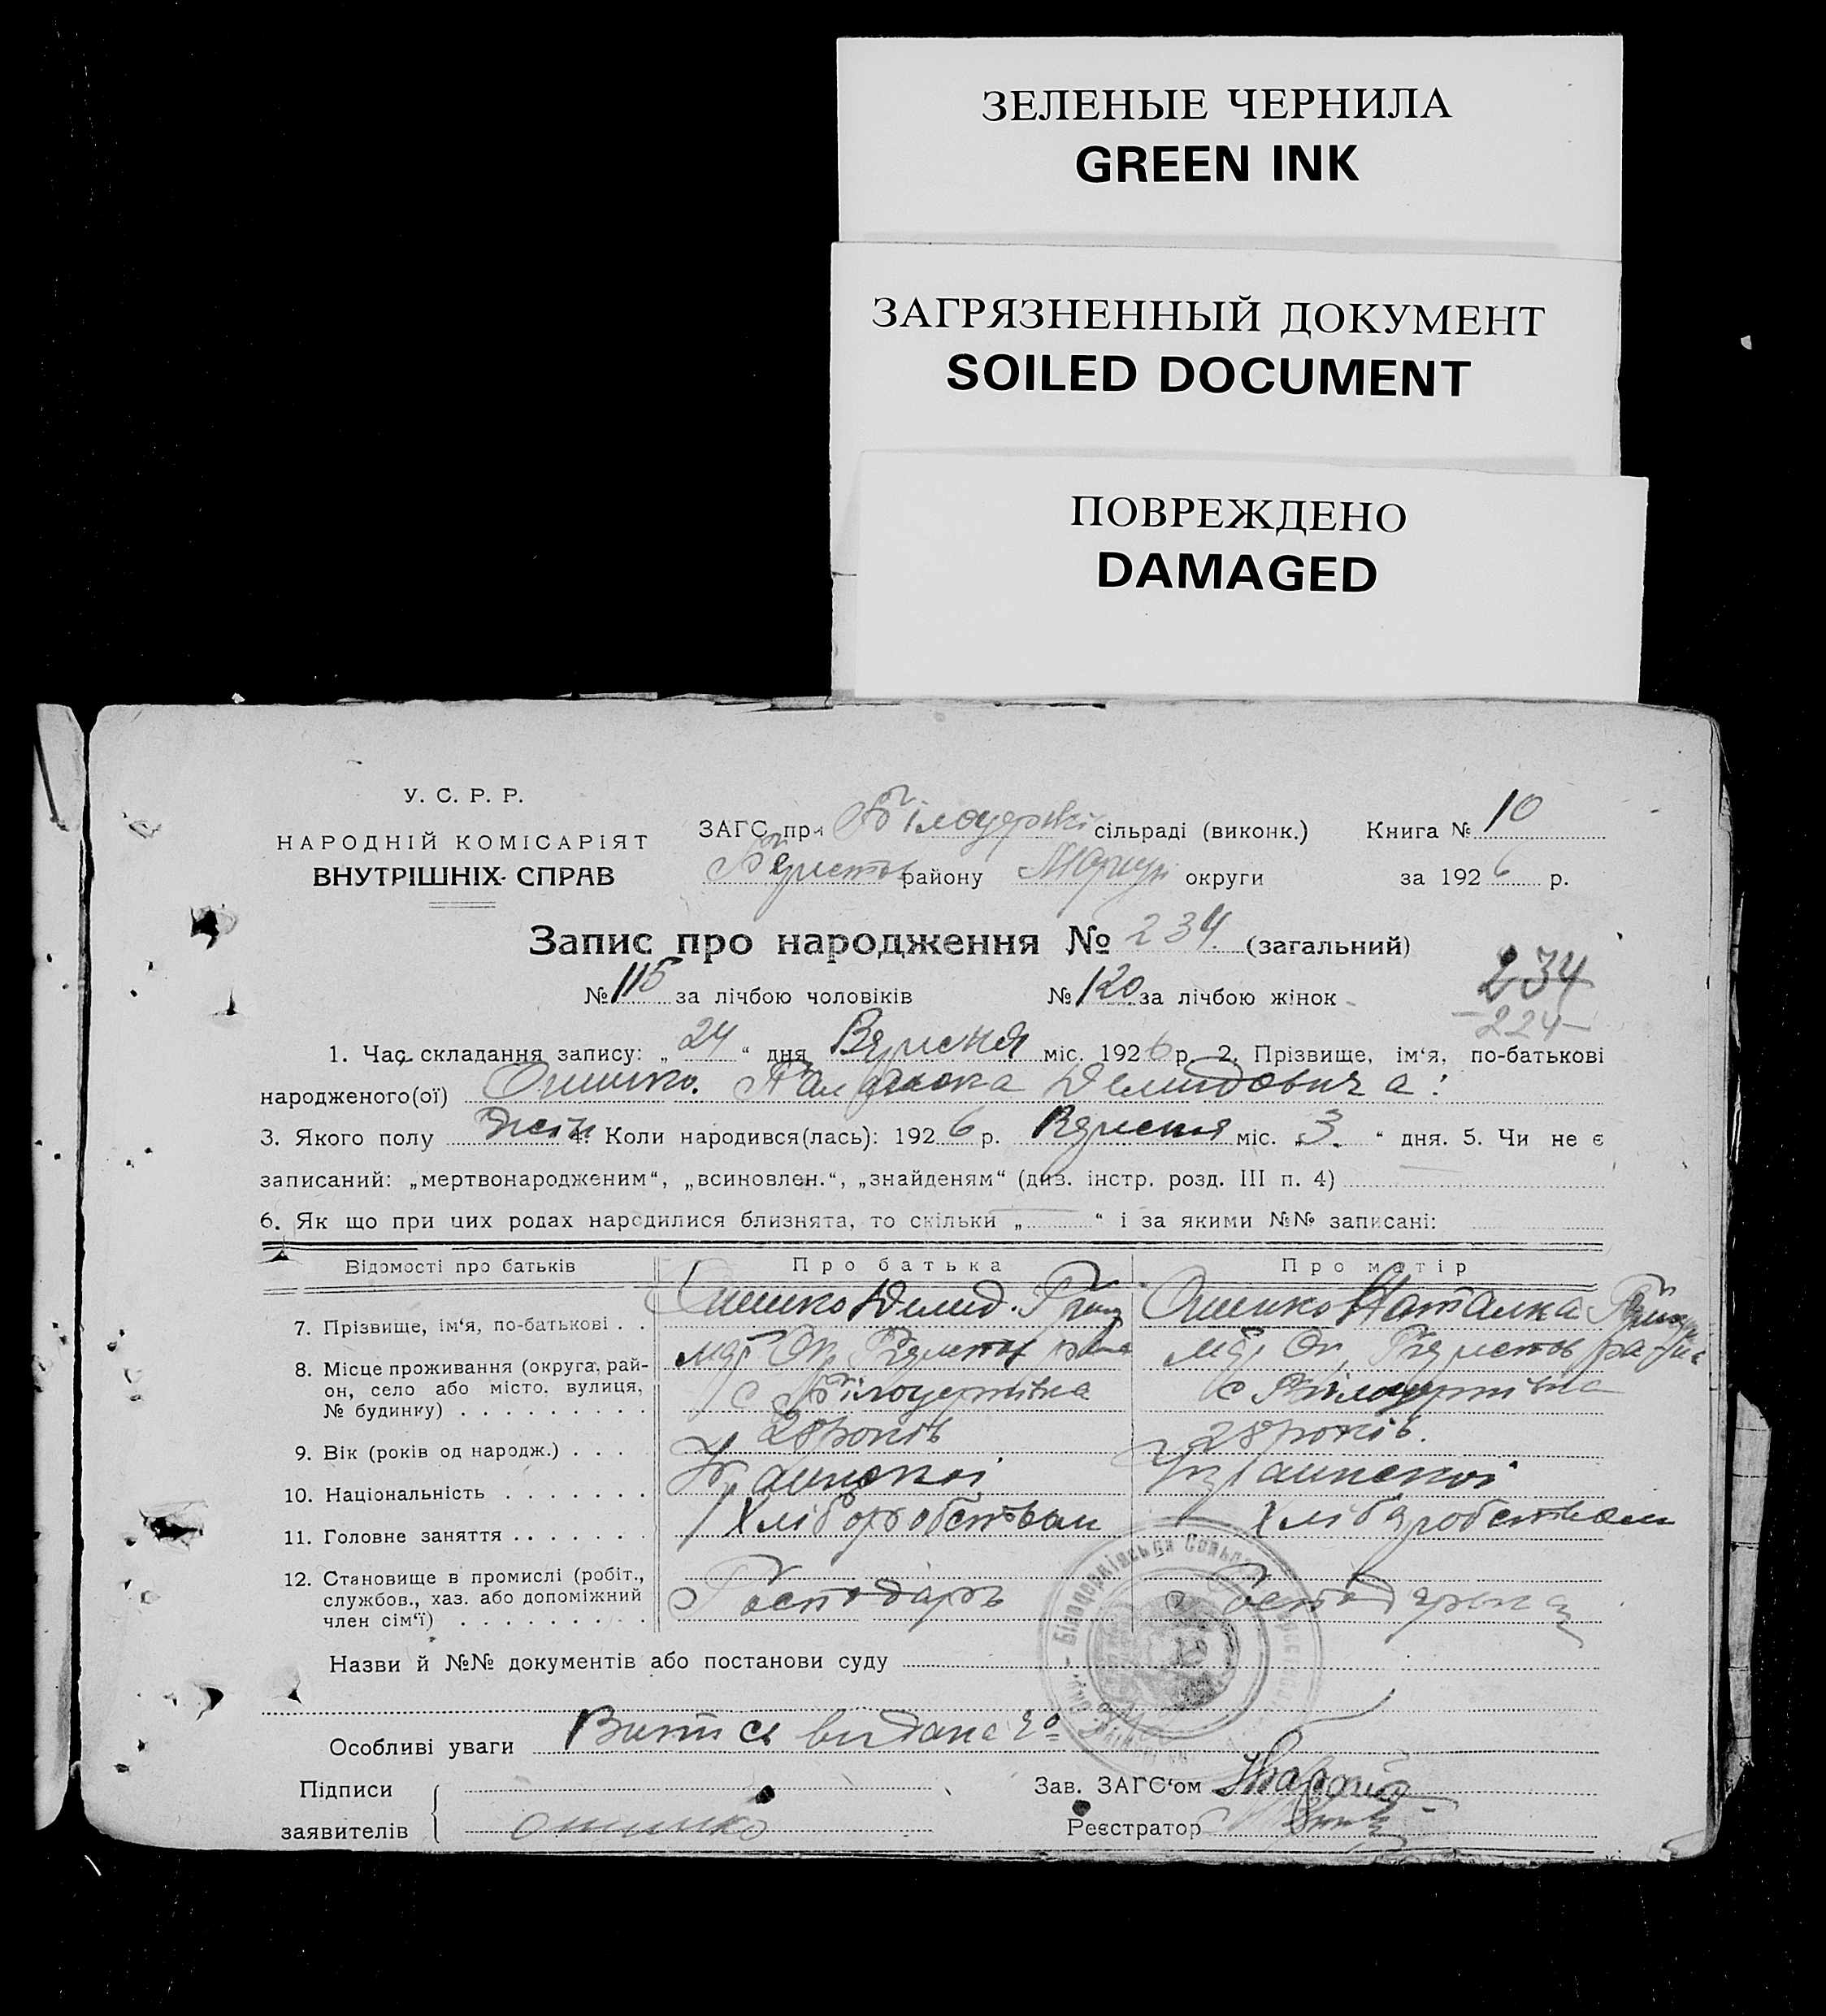 ЗЕЛЕНЫЕ ЧЕРНИЛА
GREEN INK
ЗАГРЯЗНЕННЫЙ ДОКУМЕНТ
SOILED DOCUMENT
ПОВРЕЖДЕНО
DAMAGED
У. С. Р. Р.
НАРОДНІЙ КОМІСАРІЯТ
ВНУТРІШНІХ СПРАВ
ЗАГС при Білоцерків сільраді (виконк.) Книга № 10
району округи за 1926 р.
Запис про народження № 234 (загальний)
234
№ 115 за лічбою чоловіків № 120 за лічбою жінок
224
1. Час складання запису: „24“ дня Вересня міс. 1926 р. 2. Прізвище, ім‘я, по-батькові
народженого(ої) Онишко. Демидовича
3. Якого полу жін 4. Коли народився(лась): 1926 р. Вересня міс. „3.“ дня. 5. Чи не є
записаний: „мертвонародженим“, „всиновлен.“, „знайденям“ (див. інстр. розд. III п. 4)
6. Як що при цих родах народилися близнята, то скільки „ “ і за якими №№ записані:
Відомості про батьків Про батька Про матір
7. Прізвище, ім‘я, по-батькові . . Онишко Демид Онишко Наталка
8. Місце проживання (округа, рай-
он, село або місто, вулиця, с Білоцерківка с Білоцерківка
№ будинку) . . . . . . . . .
9. Вік (років од народж.) . . . 28 років 28 років.
10. Національність . . . . . . . Української Української
11. Головне заняття . . . . . . Хліборобством Хліборобством
12. Становище в промислі (робіт.,
службов., хаз. або допоміжний Господарь Господарка
член сім‘ї) . . . . . . . . .
Назви й №№ документів або постанови суду
Особливі уваги Витись видана
Підписи Зав. ЗАГС‘ом
заявителів Онишко Реєстратор